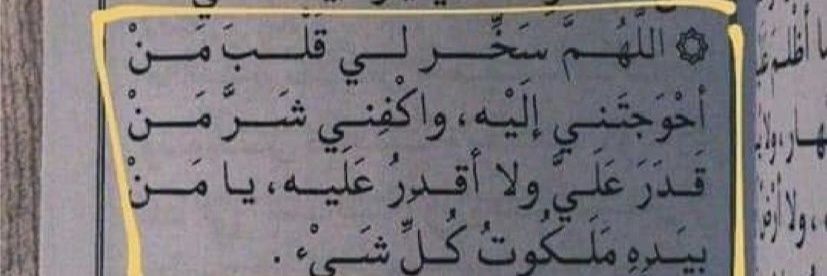 ۞ اللَّهُمَّ سَخِّر لي قَلْبَ مَنْ
أحْوَجتَني إلَيْه، واكْفِني شَرَّ مَنْ
قَدَرَ عَلَيَّ ولا أقدِرُ عَلَيه، يا مَنْ
بِيَدِهِ مَلَكُوتُ كُلِّ شَيْء .